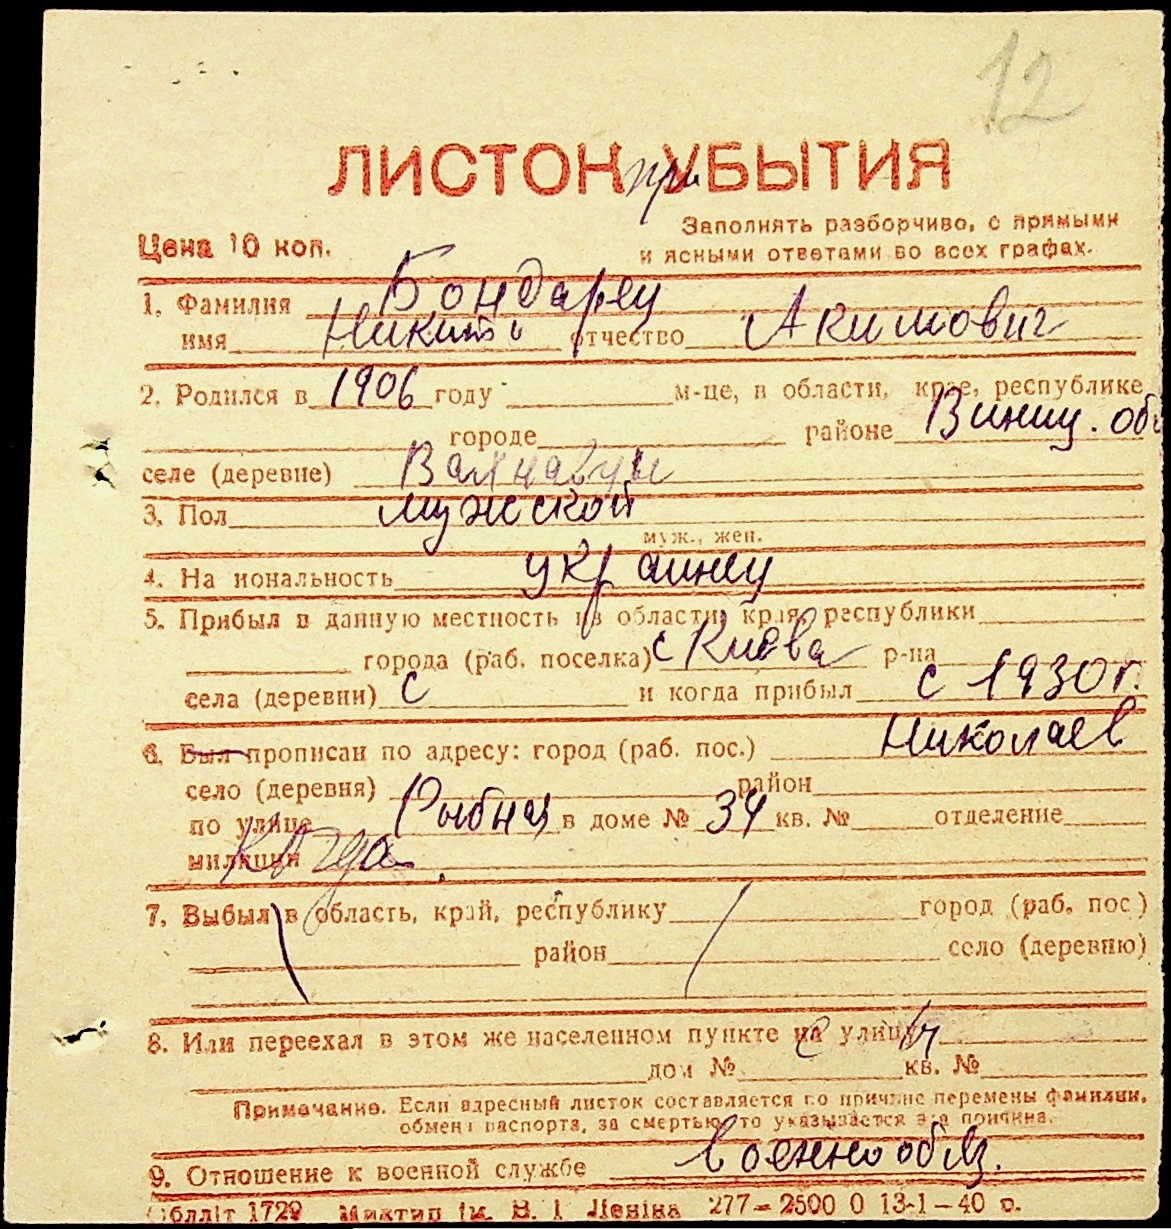 12
ЛИСТОК при УБЫТИЯ
Заполнять разборчиво, с прямыми
Цена 10 коп. и ясными ответами во всех графах.
1. Фамилия Бондарец
имя Никита отчество Акимович
2. Родился в 1906 году м-це, в области, крае, республике
городе районе Винниц. обл
селе (деревне)
3. Пол мужской
муж., жен.
4. На иональность украинец
5. Прибыл в данную местность из области, края, республики
города (раб. поселка) с Киева р-на
села (деревни) с и когда прибыл с 1930 г.
6. Был прописан по адресу: город (раб. пос.) Николаев
село (деревня) район
по улице Рыбная в доме № 34 кв. № отделение
милиции когда
7. Выбыл в область, край, республику город (раб. пос)
район село (деревню)
8. Или переехал в этом же населенном пункте на улицу
дом № кв. №
Примечание. Если адресный листок составляется по причине перемены фамилии,
обмена паспорта, за смертью, то указывается эта причина.
9. Отношение к военной службе военнообяз.
Облліт 1729 Миктип ім. В. І Леніна 277—2500 0 13-1—40 р.